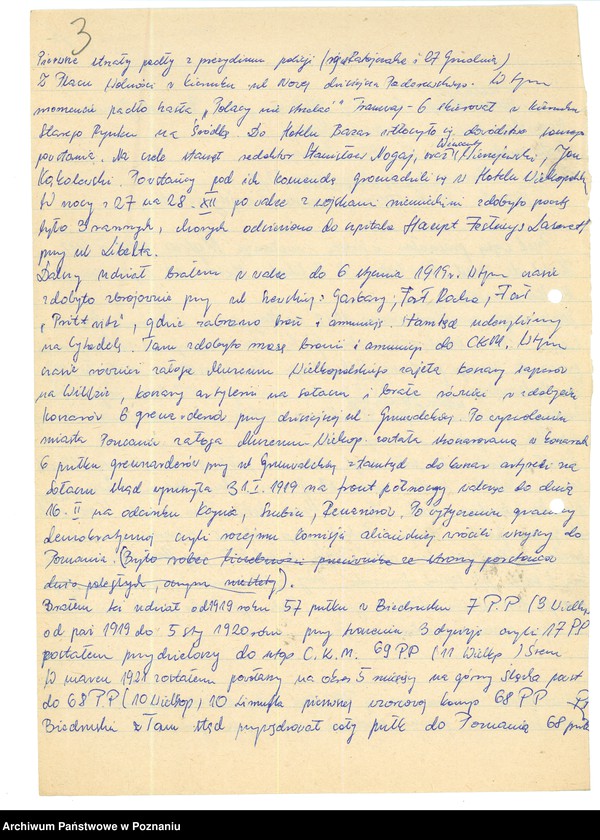 3
Pierwsze strzały padły z prezydium policji (róg Ratajczaka i 27 Grudnia)
Z Placu Wolności w kierunku ul Nowej dzisiejsza Paderewskiego. W tym
momencie padło hasło „Polacy nie strzelać" Tramwaj-6 skierował w kierunku
Starego Rynku na Śródkę. Do Hotelu Bazar
powstania. Na czele stanął redaktor Stanisław Nogaj, oraz Wincenty Wierzejewski, Jan
Kąkolewski. Powstańcy pod ich komendą gromadzili się w Hotelu Wielkopolska
W nocy z 27 na 28.XII po walce z wojskami niemieckimi zdobyto pocztę
było 3 rannych, których odwieziono do szpitala Haupt Festungs Lazarett
przy ul Libelta.
Dalszy udział brałem w walce do 6 stycznia 1919r. W tym czasie
zdobyto zbrojownie przy ul Garbary, Fort Rocha, Fort
„Prittwitz", gdzie zabrano broń i amunicję, stamtąd uderzyliśmy
na Cytadelę. Tam zdobyto masę broni i amunicji do CKM. W tym
czasie również załoga Muzeum Wielkopolskiego zajęła koszary saperów
na Wildzie, koszary artylerii na Sołaczu i brała również w zdobyciu
koszarów 6 grenadierów przy dzisiejszej ul. Grunwaldzkiej. Po wyzwoleniu
miasta Poznania załoga Muzeum-Wielkop. została skoszarowana w koszarach
6 pułku grenadierów przy ul Grunwaldzkiej stamtąd do koszar artylerii na
Sołaczu skąd wyruszyła 31.I.1919 na front północny walcząc do dnia
16.II na odcinku Kcynia, Szubin, Po wytyczeniu granicy
demarkacyjnej czyli rozejmu komisji alianckiej wrócili wszyscy do
Poznania. (Było ze strony powstańców
dużo poległych, ).
Brałem też udział od 1919 roku 57 pułku w Biedrusku 7 P.P (3 Wielkp.
od paź 1919 do 5 sty 1920 roku przy tworzeniu 3 dywizji czyli 17 PP
zostałem przydzielony do ktop C.K.M. 69 PP (11 Wielkp) Śrem
W marcu 1921 zostałem posłany na okres 5 miesięcy na górny Śląsk
do 68 P.P (10 Wielkop, 10 pierwszej wzorcowej komp 68 PP
Biedrusku Tam skąd cały pułk do Poznania 68 pułk
Archiwum Państwowe w Poznaniu